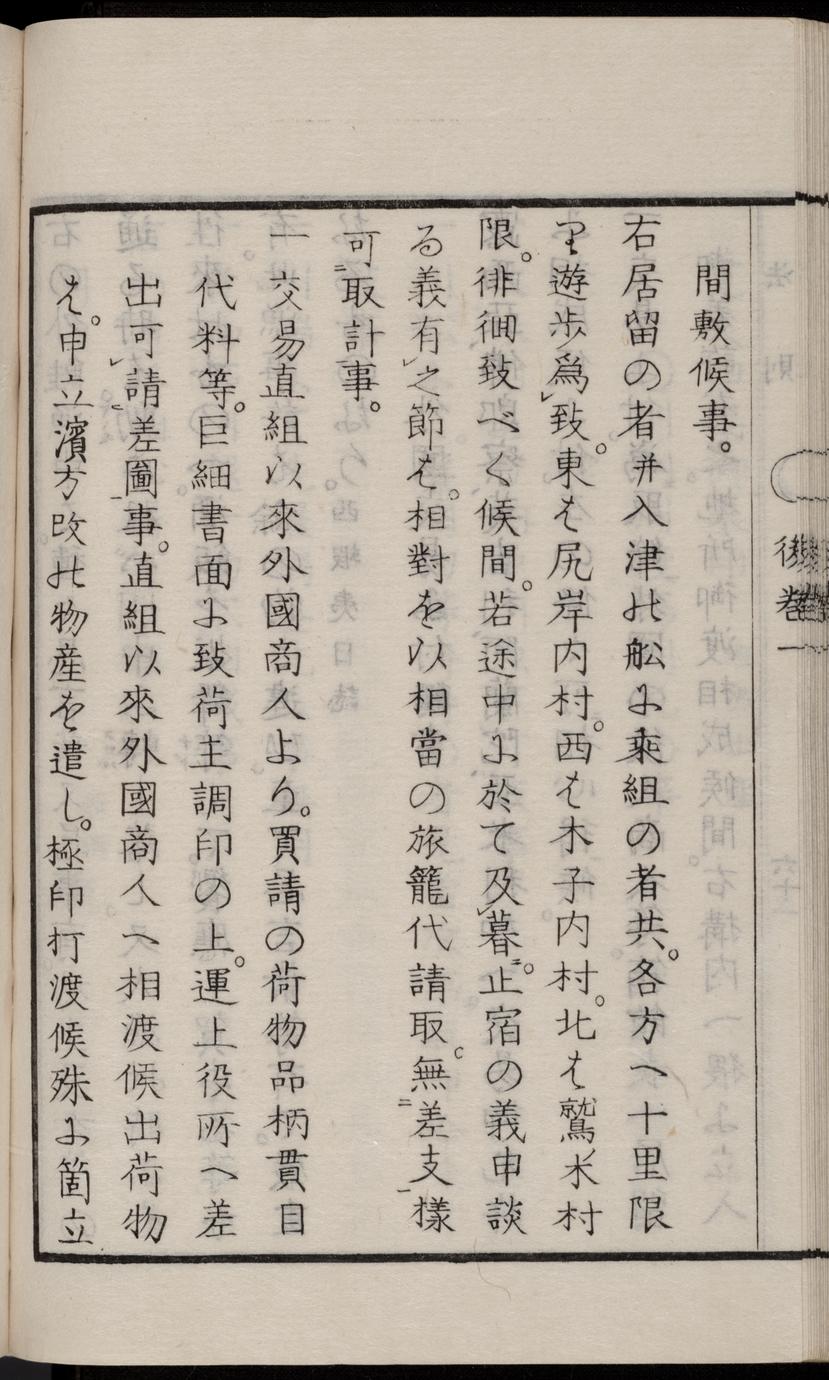 間敷候事。
右居留の者并入津の舩に乘組の者共。各方へ十里限
り遊歩爲レ致。東は尻岸内村。西は木子内村。北は鷲木村
限。徘徊致べく候間。若途中に於て及レ暮。止宿の義申談
る義有レ之節は。相對を以相當の旅籠代請取。無二差支一樣
可二取計一事。
一交易直組以來外國商人より。買請の荷物品柄貫目
代料等。巨細書面に致荷主調印の上。運上役所へ差
出可レ請二差圖一事。直組以來外國商人へ相渡候出荷物
は。申立濱方改の物産を遣し。極印打渡候殊に箇立
後卷一